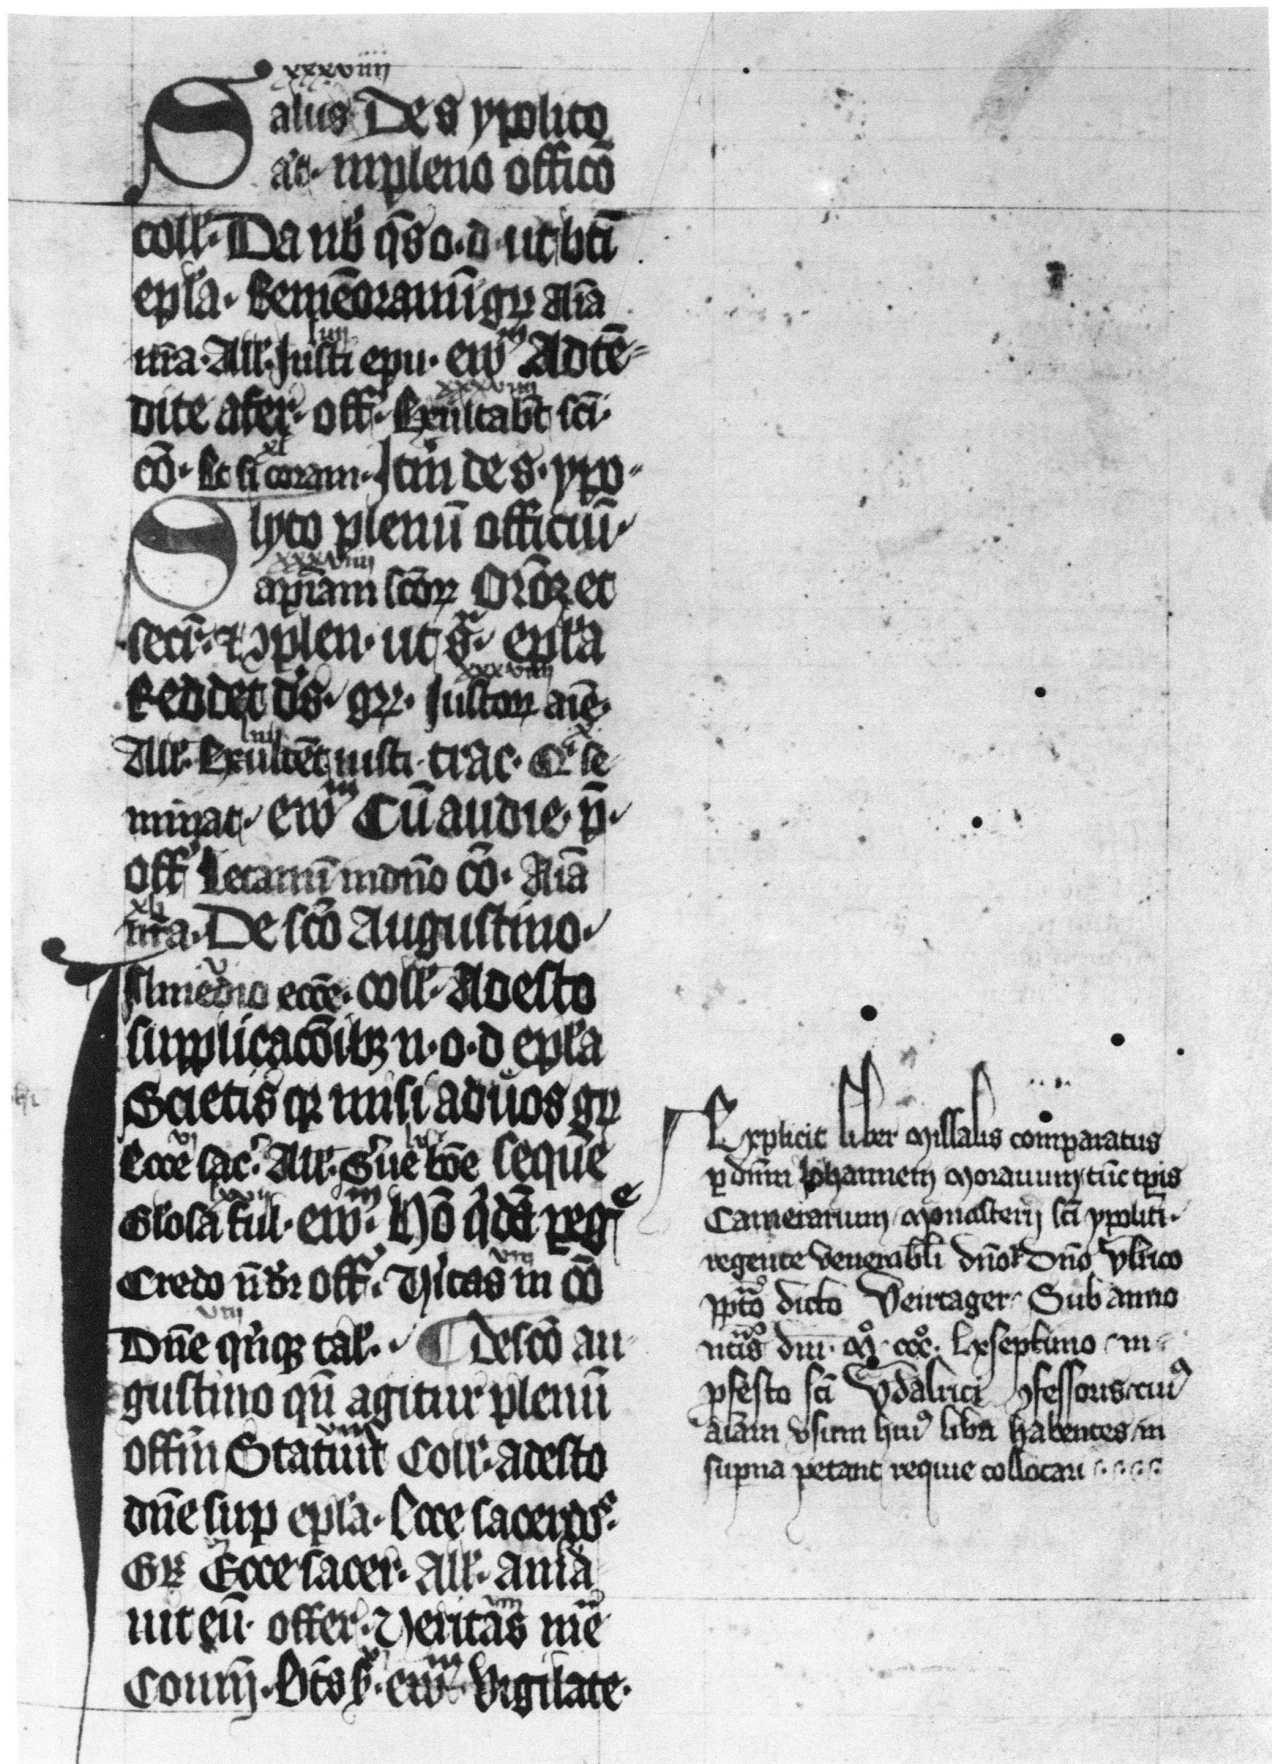 xxxviiii
Salus De s ypolito
ac. inpleno officō
coll. Da nb qs o. d. ut bti
epła. Remēoramī gr Aīa
nr̄a. All. Justi epu. ew̄ Adtē=
dite a fer. off. Exultabt sci.
cō. Et si coram. Itm de s. ypo=
lyto plenū officiū.
xxxviiii
apiam scōꝝ Orōꝝ et
secr. ⁊ ꝯplen. ut s. epła
Reddet ds. gr. Justoꝝ aīe.
All. Exultēt iusti. trac. Qi se
minat. ew̄ Cū audie. p̄.
off Letamī indn̄o cō. Aīa
nr̄a. De scō Augustino.
In medio eccē. coll. Adesto
supplicacōibꝫ n. o. d epła
Scietis qꝛ misi ad uos gr
Ecce sac. All. seque
Glosa ful. ew̄. Hō qdā pegᵉ
Credo n̄ dr off. Vitas in cō
Dn̄e qnqꝫ tal. ¶ De scō au
gustino qn̄ agitur plenū
offm Statuit Coll. adesto
dn̄e sup epła. Ecce sacerdos.
Gr Ecce sacer. All. ama
uit eū. offer. Veritas mē
Coīonī. Bts s. ew̄ Vigilate.
Explicit liber missalis comparatus
p dn̄m Johannem Morauum tūc tpis
Camerarium monasterij sci ypoliti.
regente venerabli dn̄o dn̄o Vlrico
ppto dicto Veirtager. Sub anno
ntis dni. Mº. cccº. lxseptimo in
pfesto sci Vdalrici ꝯfessoris cuiꝰ
aīam vsum huiꝰ libri habentes in
supna petant requie collocari